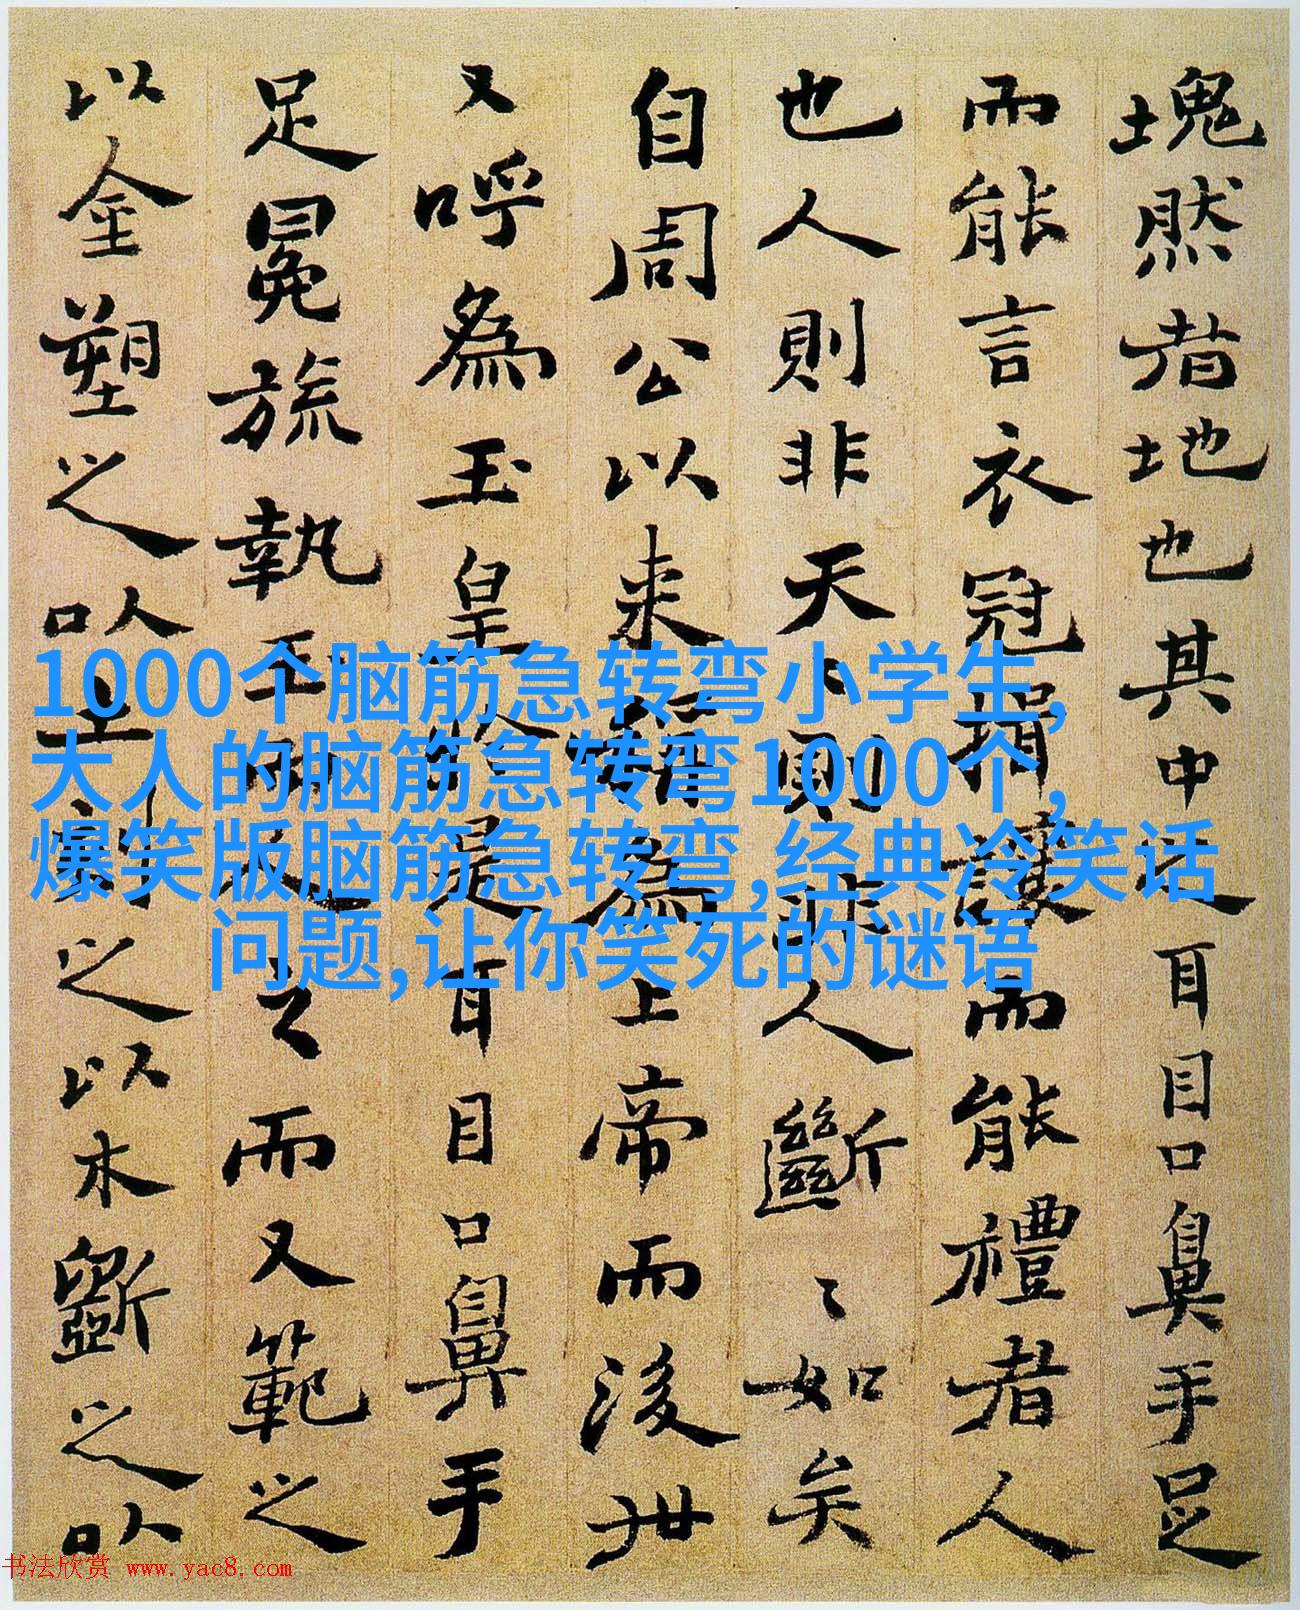 塊然者地也其中之耳目口鼻手足
而能言衣冠揖讓而能禮者人
也人則非天天則非人斷〻如矣
自周公以来為上帝而後世
又呼為玉皇於是耳目口鼻手
足冕旒執玉之而又範之
以金塑之以土刻之以木斵之以
1000个脑筋急转弯小学生,
大人的脑筋急转弯1000个,
爆笑版脑筋急转弯,经典冷笑话
问题,让你笑死的谜语
书法欣赏 www.yac8.com